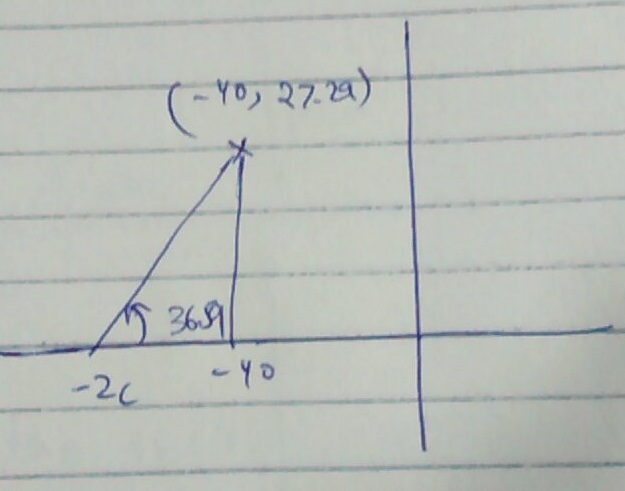 (-40, 27.29)
36.59
-Zc
-40